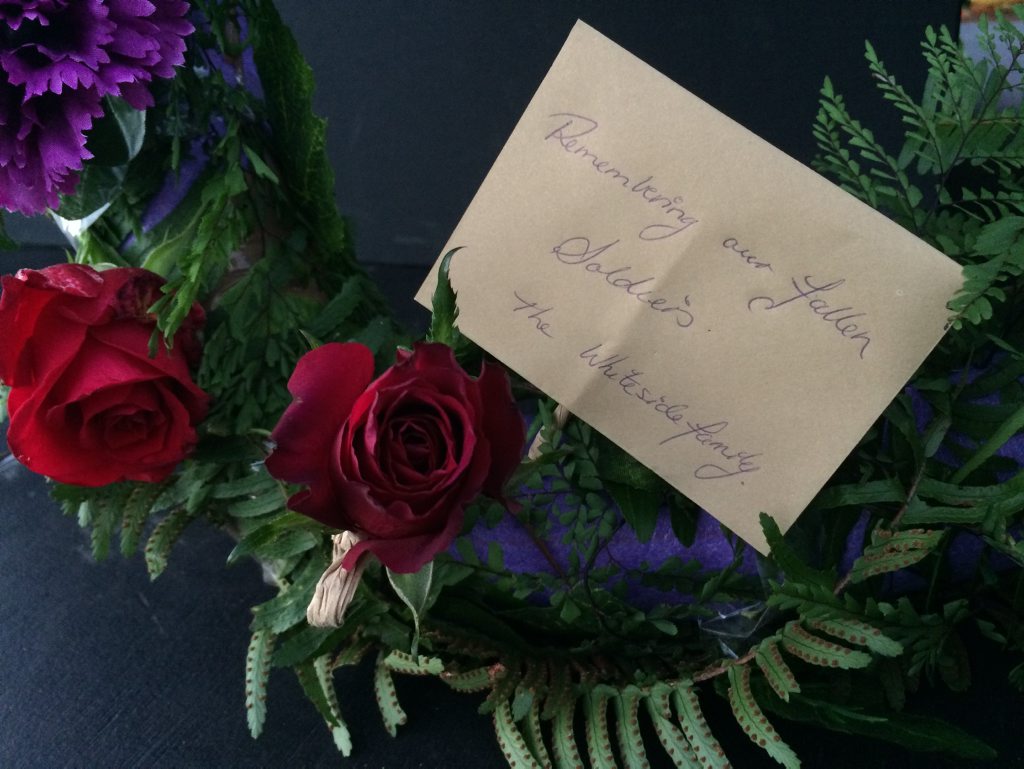 Remembering our fallen
Soldiers
The Whiteside family.